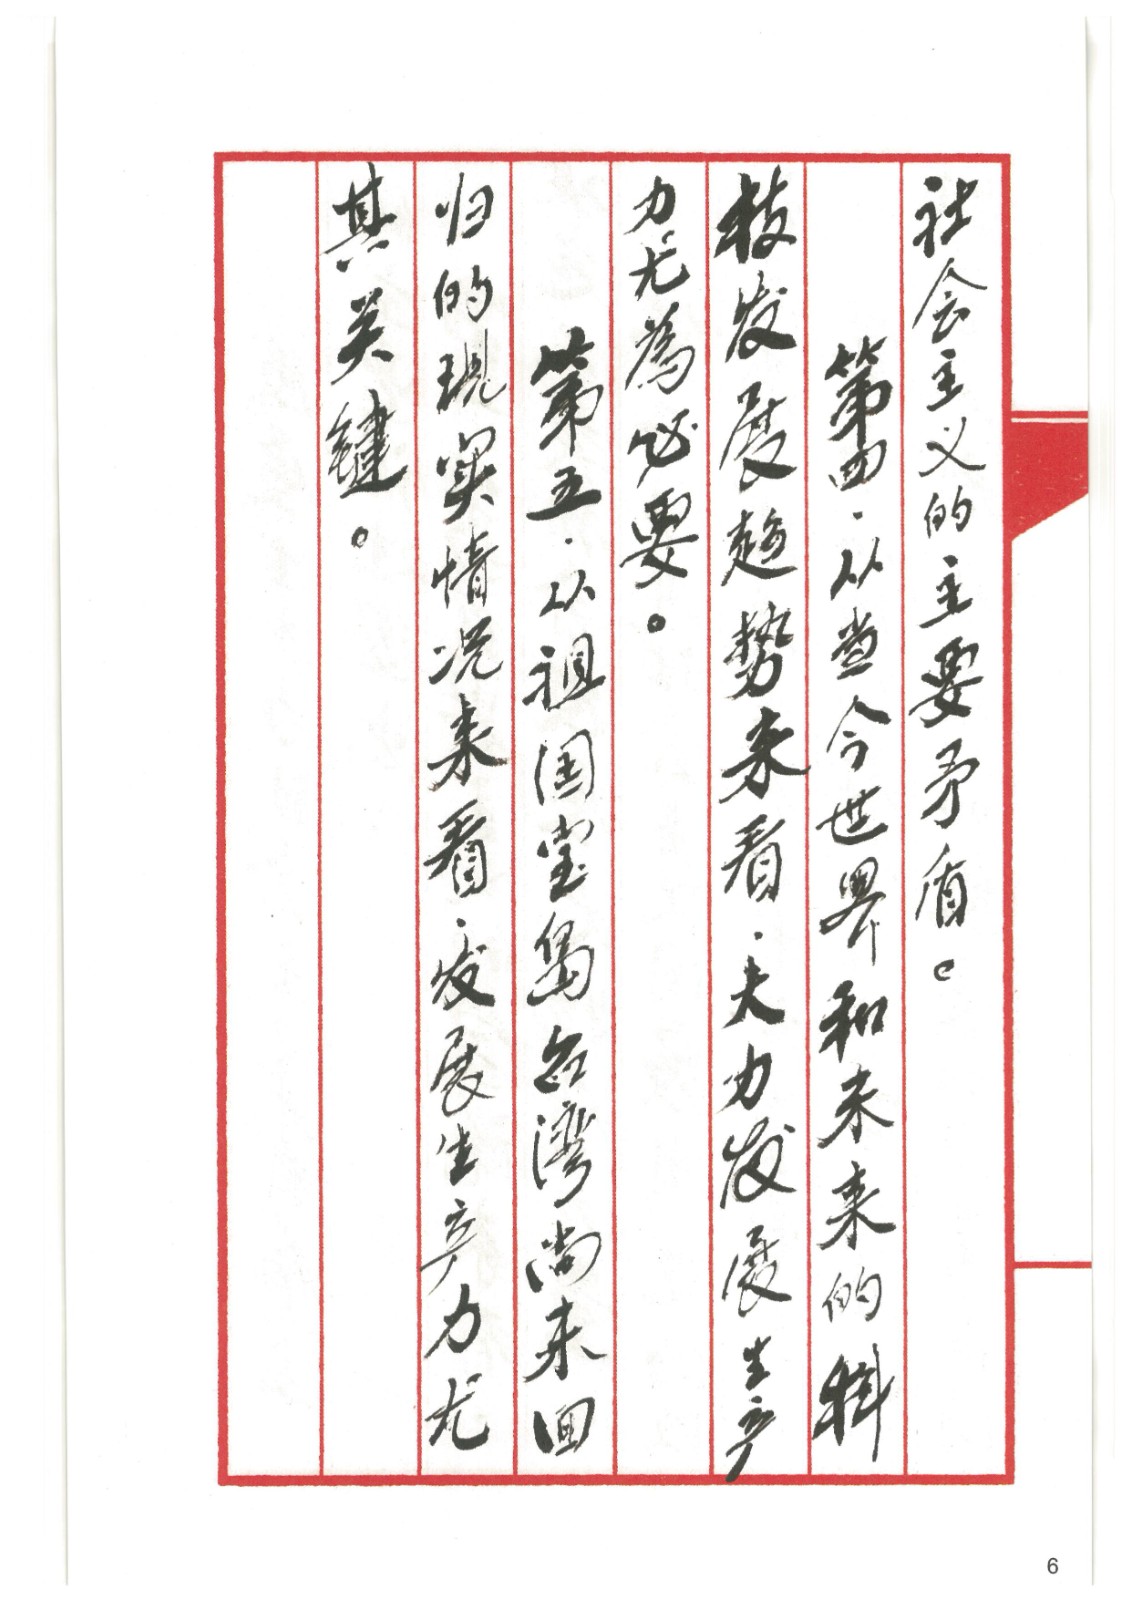 社会主义的主要矛盾。
第四.从当今世界和未来的科
技发展趋势来看.大力发展生产
力尤為必要。
第五.从祖国宝岛台湾尚未回
归的现实情况来看.发展生产力尤
其关键。
6